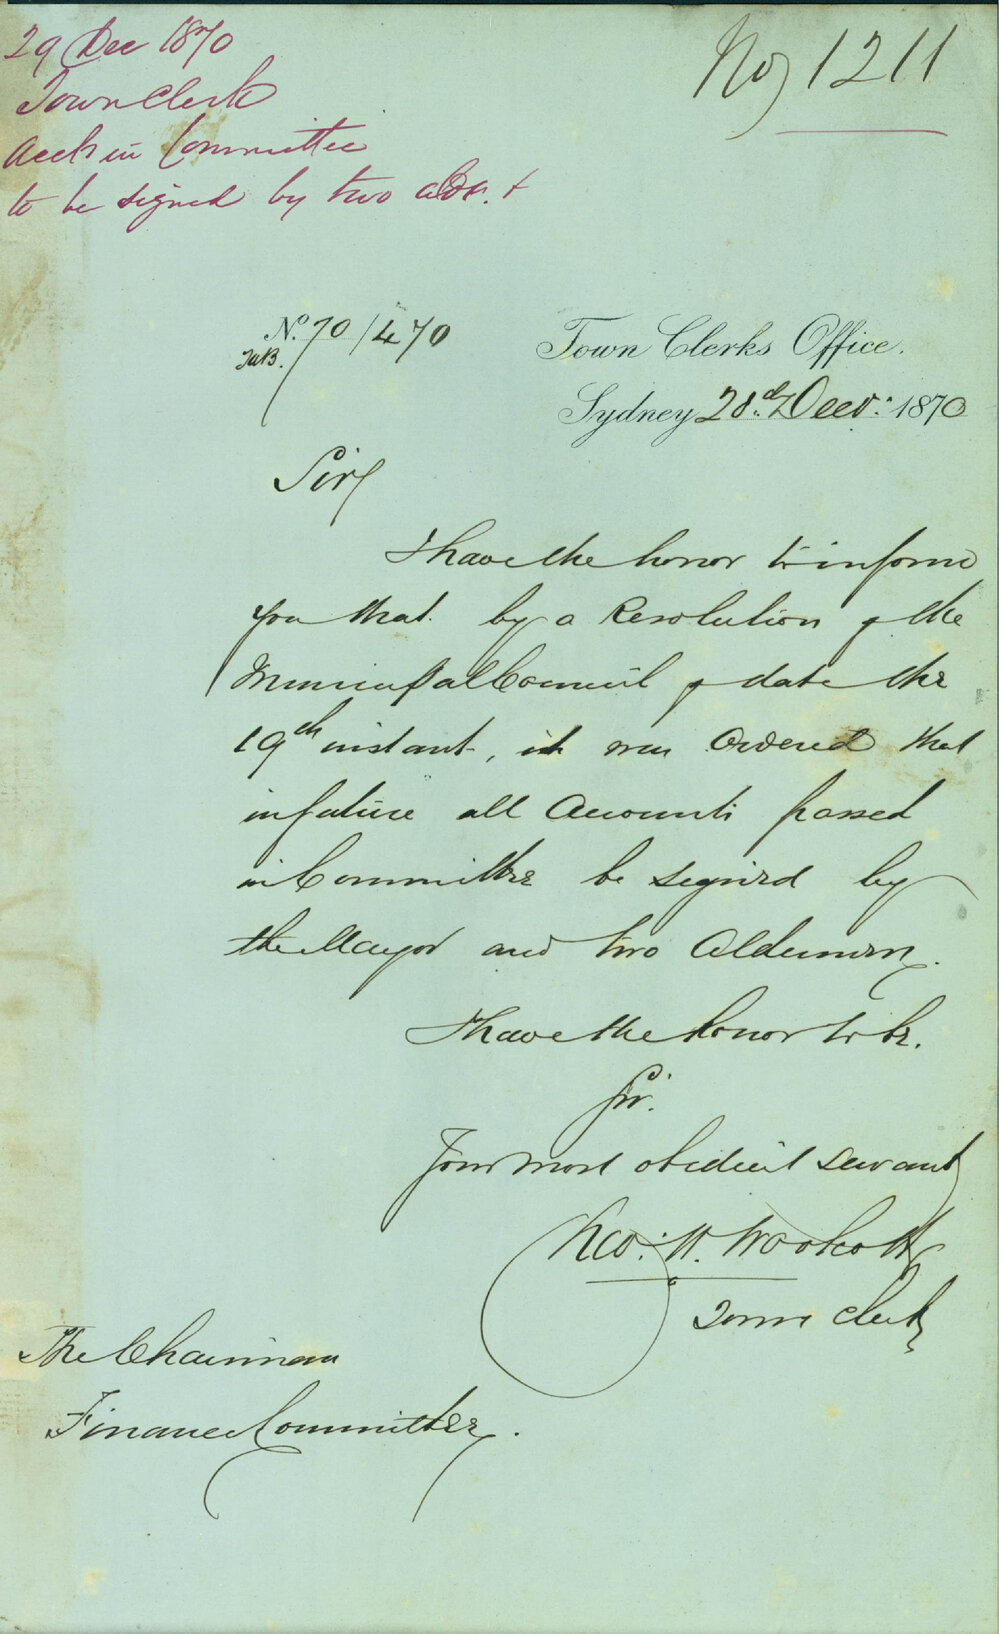 29 Dec 1870
Town Clerk
Accts in Committee
to be signed by two Alder. +
No 1211
No. 70/470
Town Clerks Office.
Sydney 28th Decr. 1870
Sir/
I have the honor to inform
you that by a Resolution of the
Municipal Council of date the
19th instant, it was Ordered that
in future all Accounts passed
in Committee be signed by
the Mayor and two Aldermen.
I have the honor to be.
Sir.
Your most obedient servant
Geo: H. Woolcott
Town Clerk
The Chairman
Finance Committee.